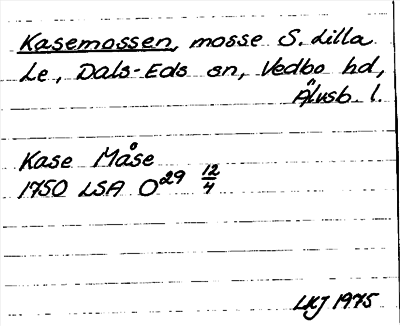 Kasemossen, mosse S. Lilla
Le, Dals-Eds sn, Vedbo hd,
Älvsb. l.
Kase Måse
1750 LSA O29 12/4
LKJ 1975